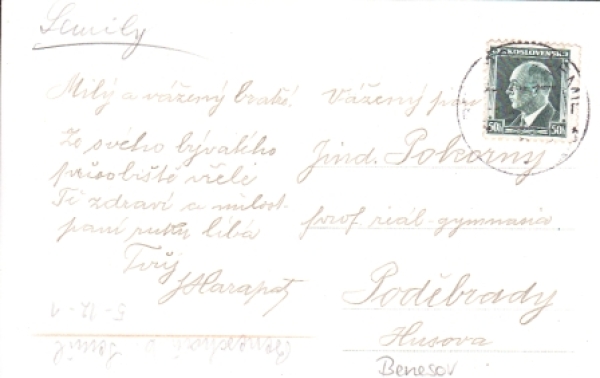 Semily
Milý a vážený brachu!
Ze svého bývalého
působiště vřele
Tě zdraví a milost-
paní ruku líbá
Tvůj
J Harapat
Vážený pan
Jind. Pokorný
prof. reál. gymnasia
Poděbrady
Husova
Benesov
ČESKOSLOVENSKO
50h 50h
5-12-1